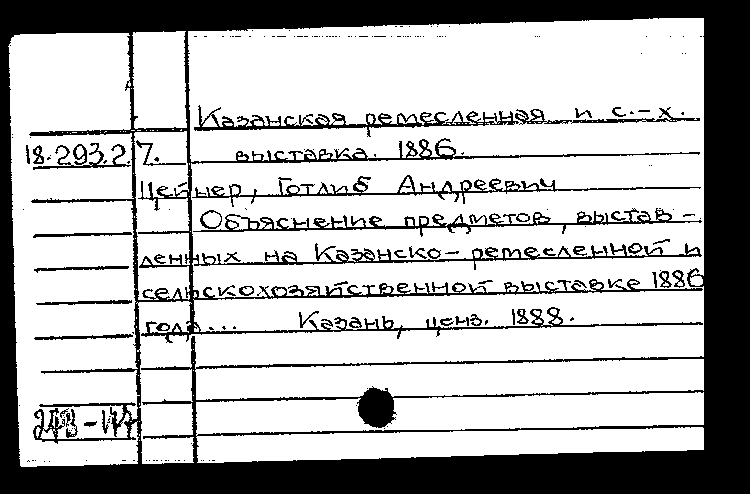 Казанская ремесленная и с.-х.
18.293.2.7. выставка. 1886.
Цейнер, Готлиб Андреевич
Объяснение предметов, выстав-
ленных на Казанско-ремесленной и
сельскохозяйственной выставке 1886
года... Казань, ценз. 1888.